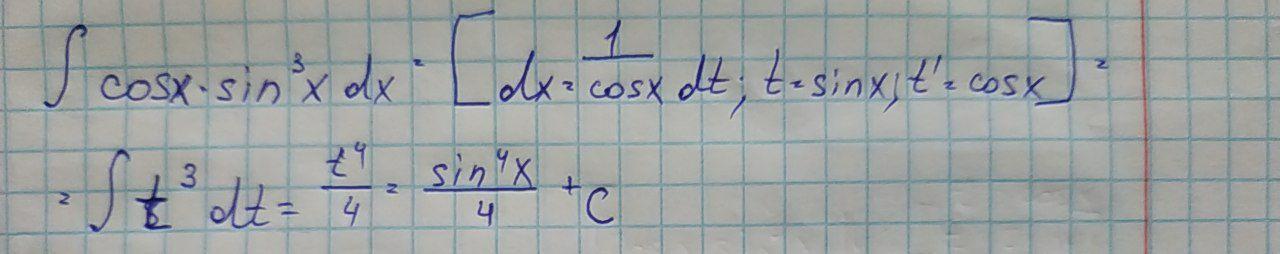 ∫ cosx · sin³x dx = [dx = 1/cosx dt; t = sinx; t' = cosx] =
= ∫ t³ dt = t⁴/4 = sin⁴x/4 + C